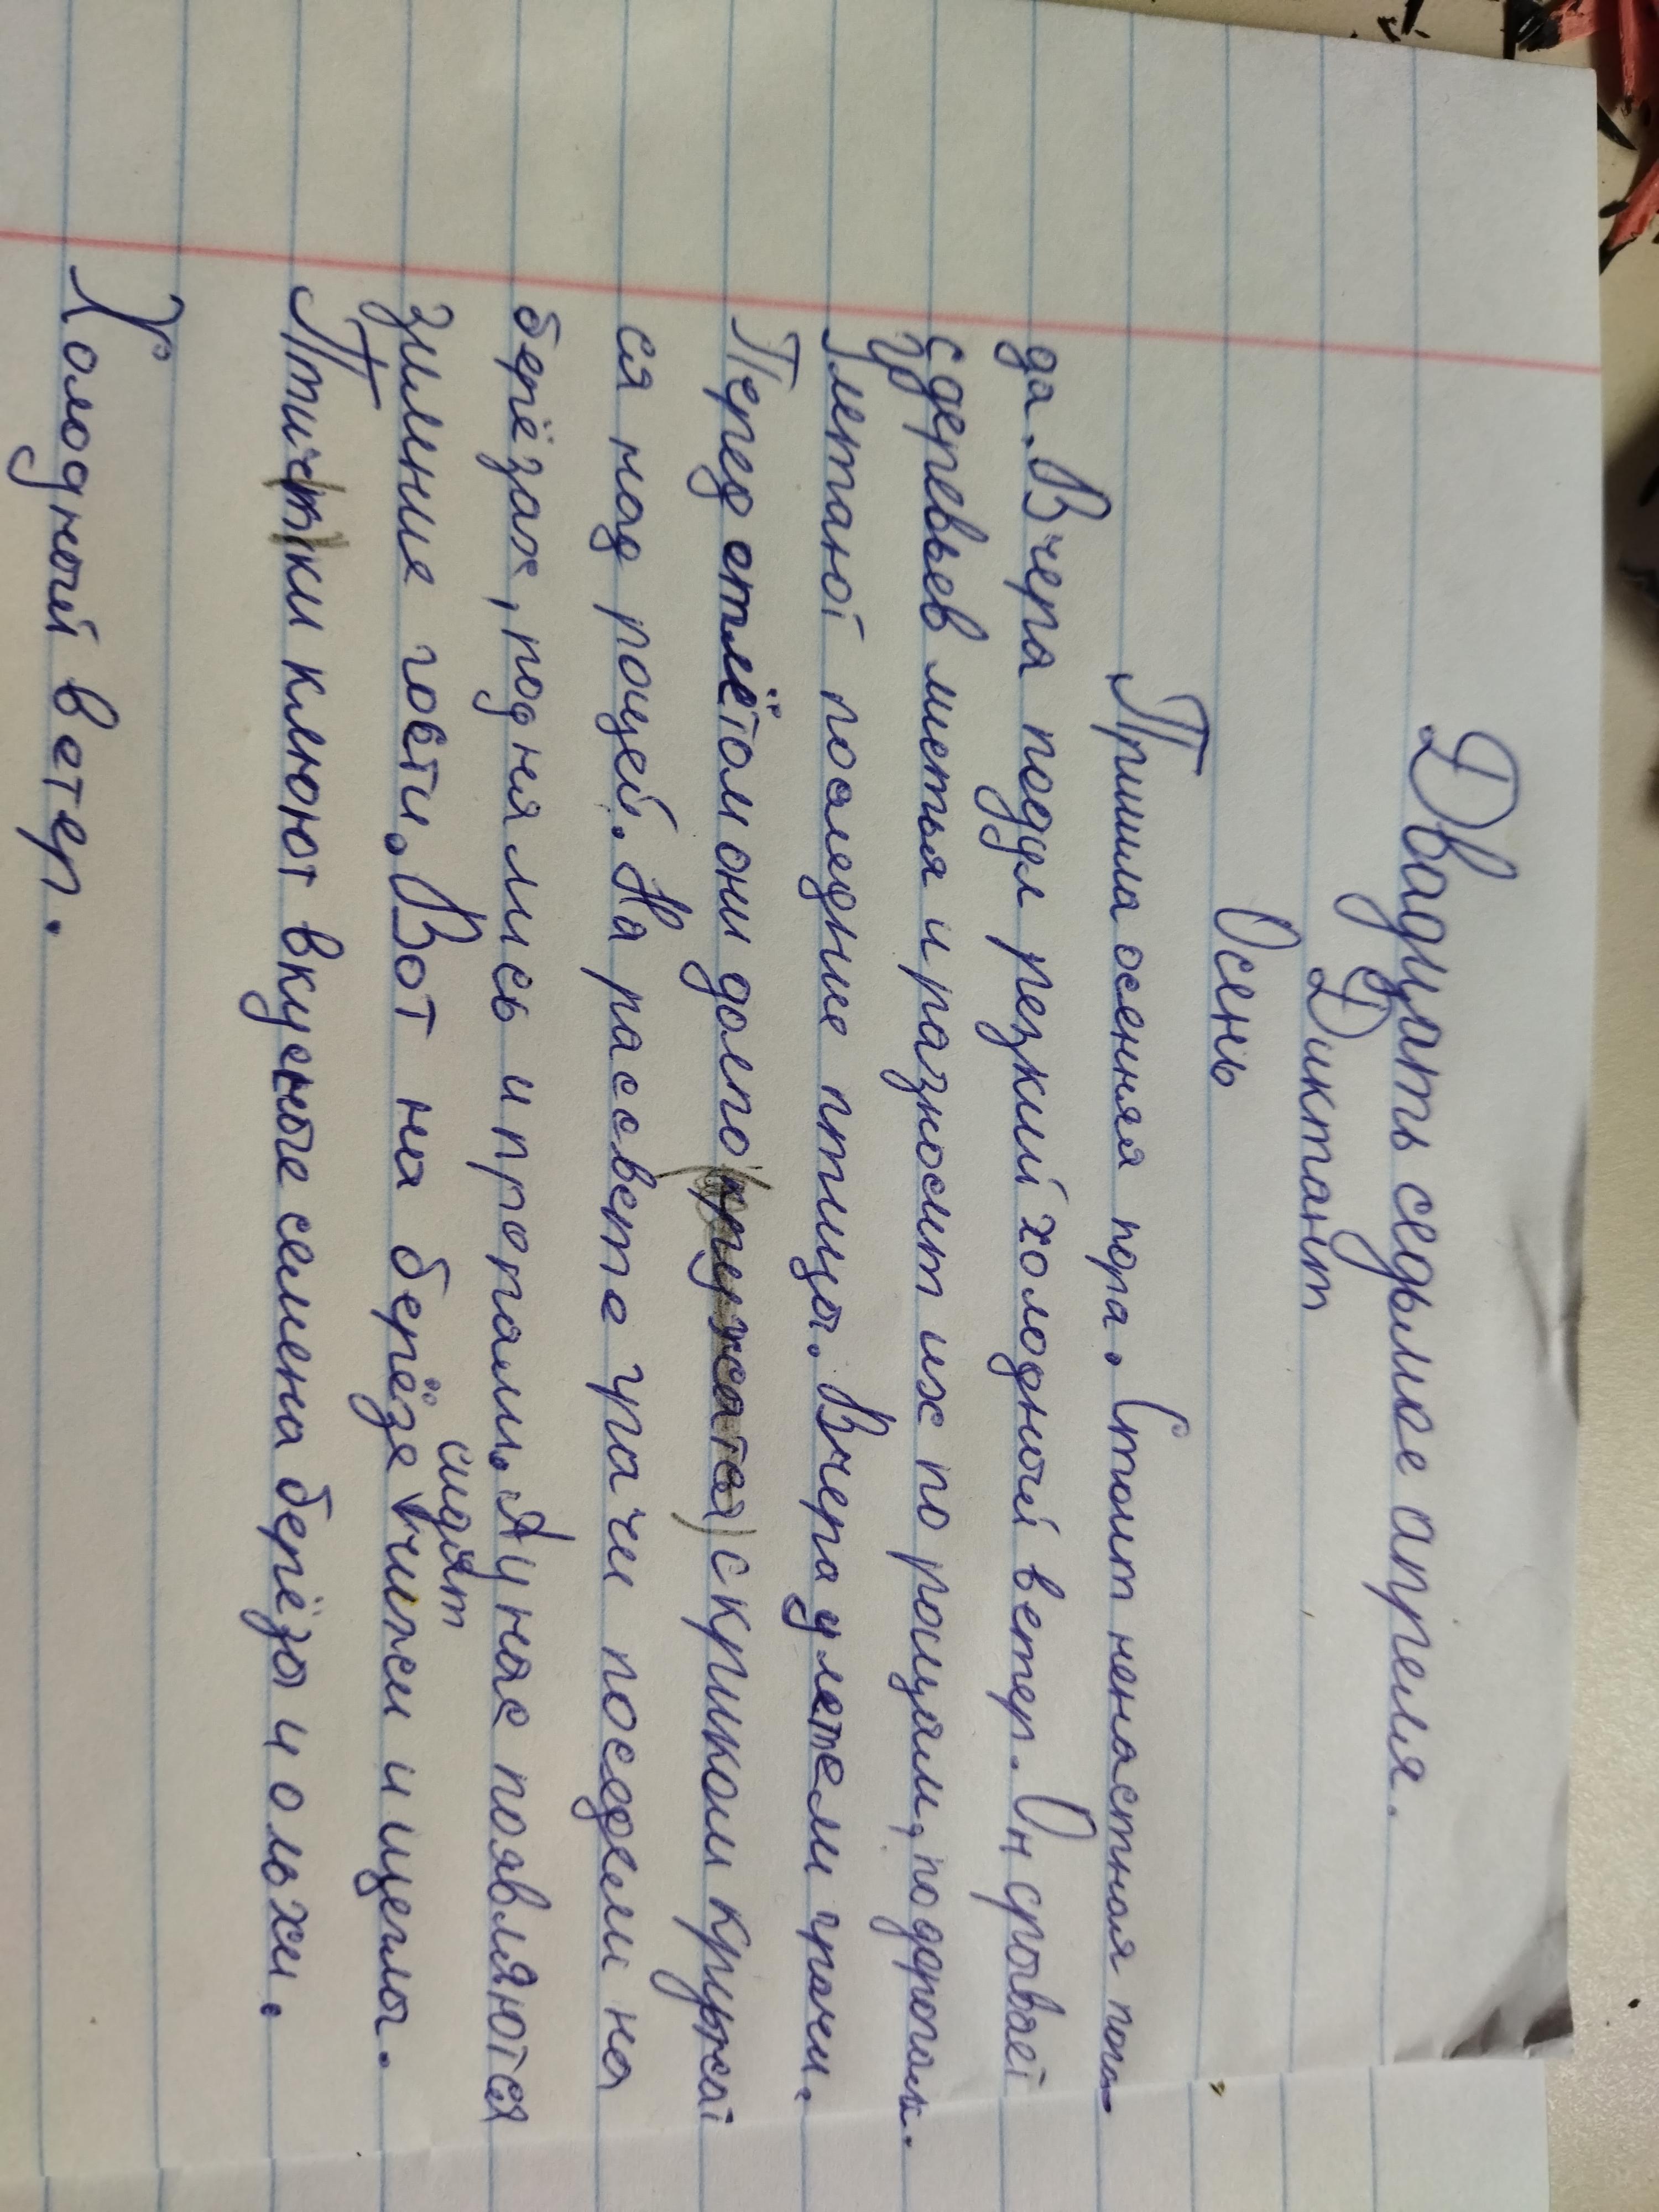 Двадцать седьмое апреля.
Диктант
Осень
Пришла осенняя пора. Стоит ненастная пого-
да. Вчера подул резкий холодный ветер. Он срывает
с деревьев листья и разносит их по рощам, по дорогам.
Улетают последние птицы. Вчера улетели грачи.
Перед отлётом они долго (кружатся) с криком кружат
ся над рощей. На рассвете грачи поседели на
берёзах, поднялись и пропали. А у нас появляются
зимние гости. Вот на берёзе сидят чижи и щеглы.
Птич(т)ки клюют вкусные семена берёзы и ольхи.
Холодный ветер.